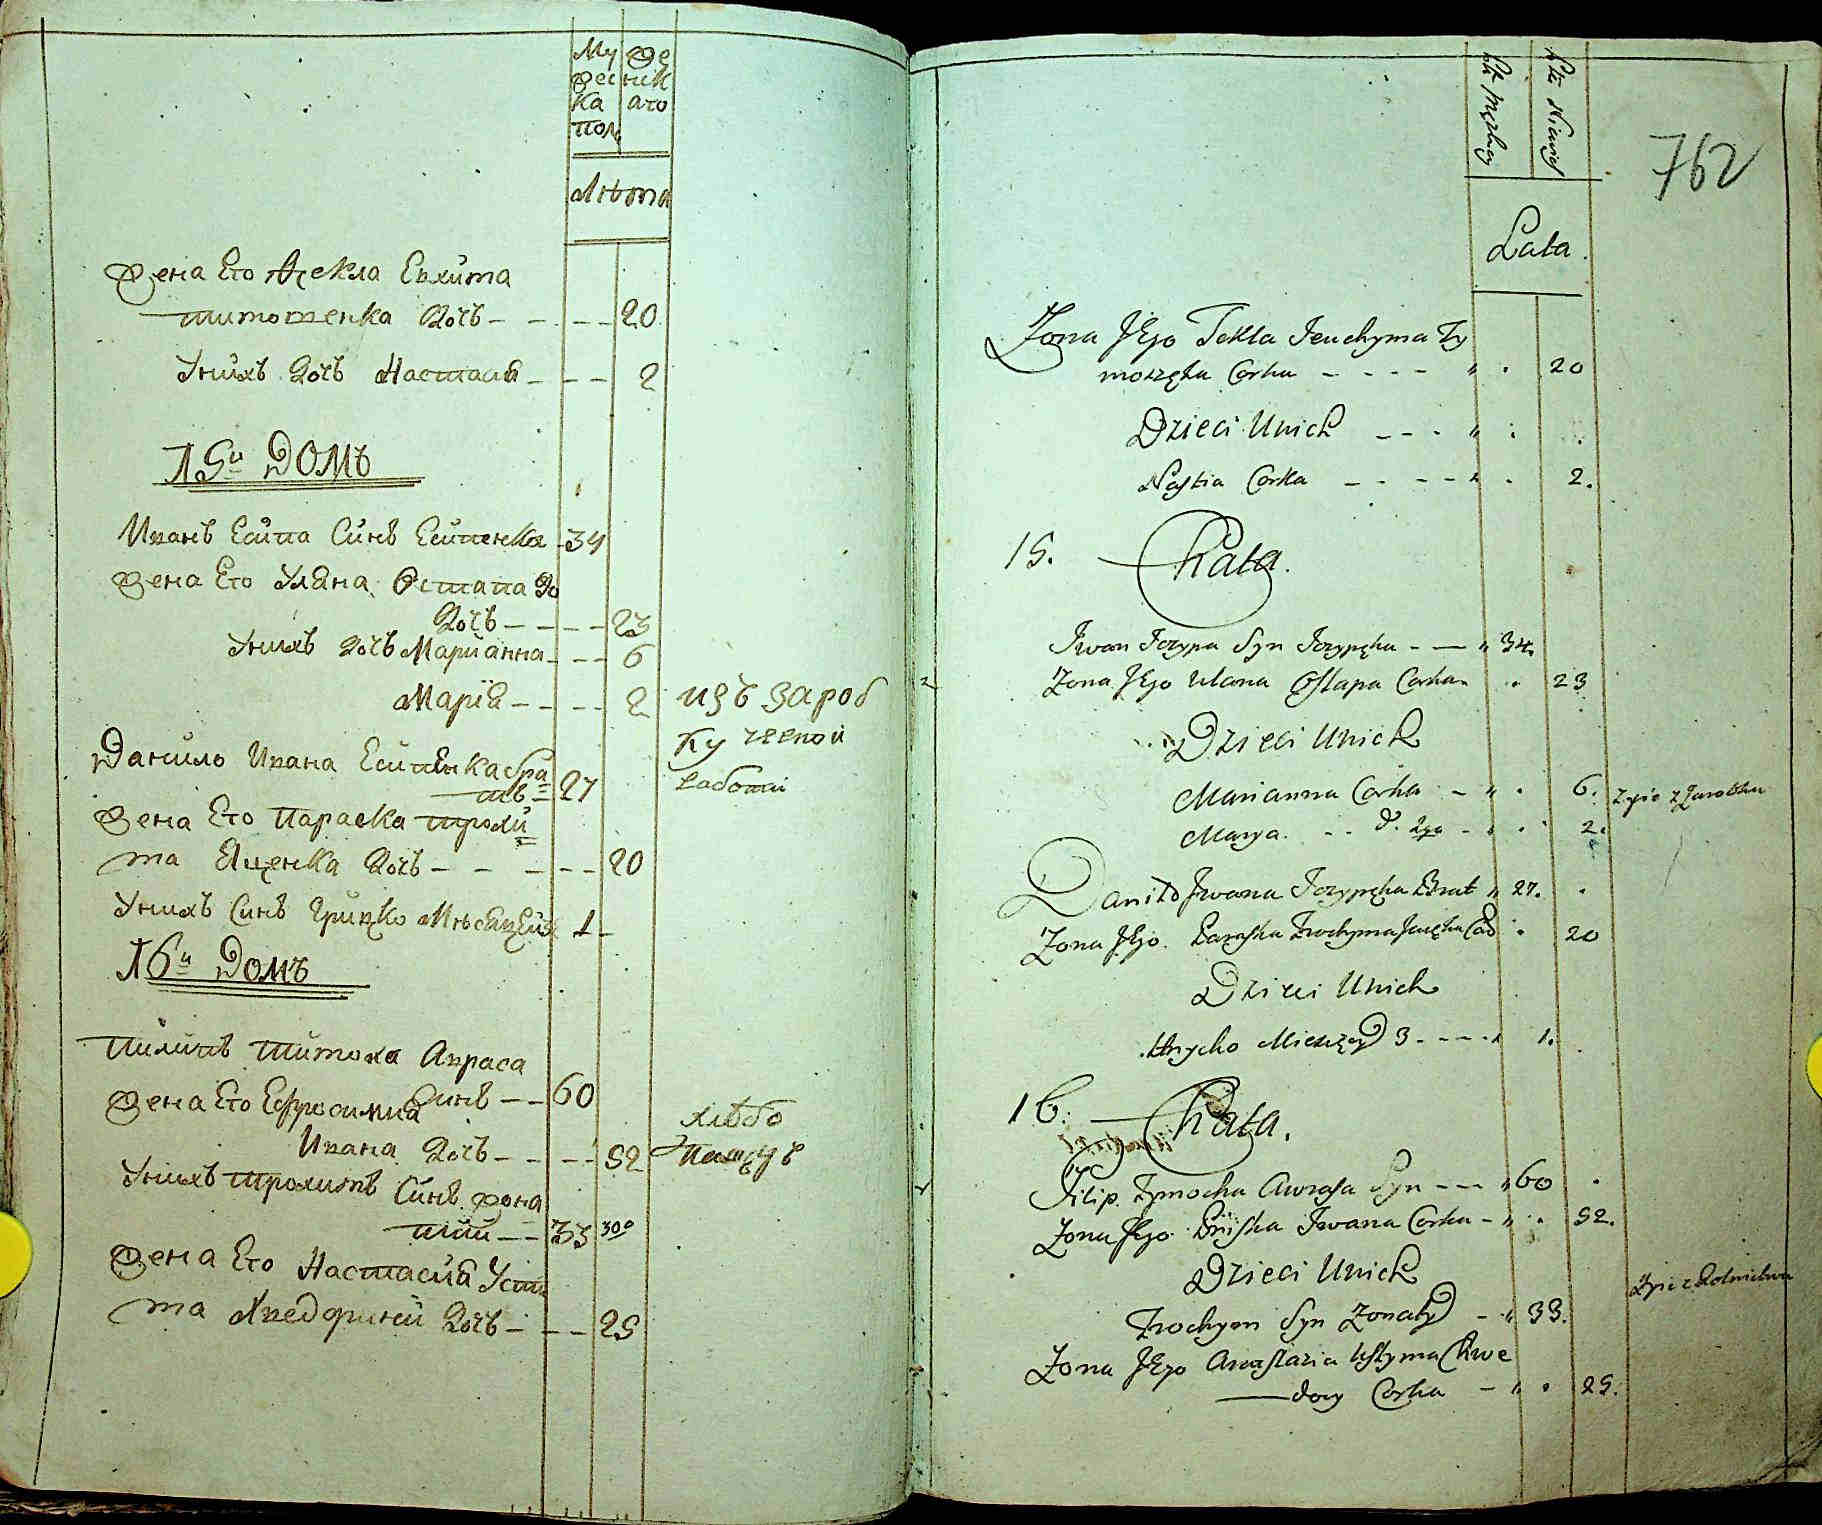 Му Же
жес нск
ка аго
пол
Лѣта
Жена Его Текла Евхима
Тимошенка Дочь - - - - 20
Унихъ Дочь Настасiя - - - 2
15й ДОМЪ
Иванъ Есипа Синъ Есипенка 34
Жена Его Уляна Остапа
Дочь - - - - 23
Унихъ Дочь Марианна - - - 6
Марiя - - - - 2
изъ зароб
ку чееной
работи
Данило Ивана Есипенка бра
тъ = 27
Жена Его Параска Трохи
ма Яценка Дочь - - - - - 20
Унихъ Синъ Грицко Мѣсяцей 1
16й Домъ
Пилипъ Тимоха Авраса
Синъ - - 60
Жена Его Ефросимия
Ивана Дочь - - - - 52
хлѣбо
пашецъ
Унихъ Трохимъ Синъ жона
тий - - 33
Жена Его Настасия Усти
ма Хведориней Дочь - - - 25
762
Lata.
Żona JEgo Tekla Jeuchyma Ty
moszęka Corka - - - - 20
Dzieci Unich - - -
Nastia Corka - - - - 2.
15. Chata.
Iwan Jozypa Syn Jozypęka - - 34.
Zona JEgo Ulana Ostapa Corka 23
Dzieci Unich
Marianna Corka - 6.
Żyie z Zarobku
Marya. - - d. 2ga - 2.
Daniło Iwana Jozypęka Brat 27.
Zona JEgo. Paraska Trochyma Jacęka Có 20
Dzieci Unich
Hrycko Miesięcy 3 - - - - 1.
16. Chata.
Filip Tymocha Awrasa Syn - - - 60
Zona JEgo Pryśka Iwana Corka - 52.
Dzieci Unich
Żyie z Rolnictwa
Trochym Syn Zonaty - 33.
Zona JEgo Anastazia Ustyma Chwe
dory Corka - 25.